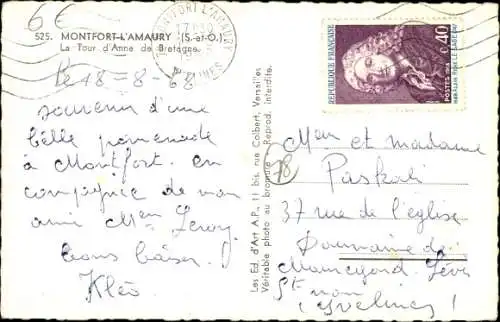 6 €
525. MONTFORT-L'AMAURY (S.-et-O.)
La Tour d'Anne de Bretagne.
MONTFORT L'AMAURY
YVELINES
Le 18-8-68
souvenir d'une
belle promenade
à Montfort. en
compagnie de mon
ami Men Leroy.
bons baisers !
Kléo
Les Ed. d'Art A.P., 11 bis, rue Colbert, Versailles
Véritable photo au bromure - Reprod. interdite.
REPUBLIQUE FRANÇAISE
POSTES 0,40
ALAIN RENE LE SAGE
78
Men et madame
Paskali
37 rue de l'église
Doumaine de
Lévis
St non
(Yvelines)